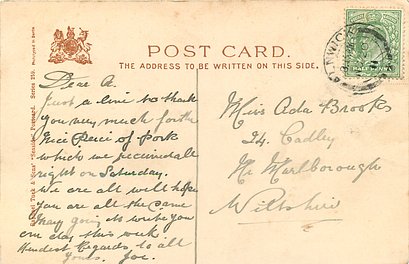 POST CARD.
THE ADDRESS TO BE WRITTEN ON THIS SIDE.
HALFPENNY
Dear A.
Just a line to thank
you very much for the
Nice Peice of Pork
which we received all
right on Saturday.
We are all well hope
you are all the same
May going to write you
one day this week.
Kindest Regards to all
Yours, Joe.
Miss Ada Brooks
24. Cadley
Nr Marlborough
Wiltshire